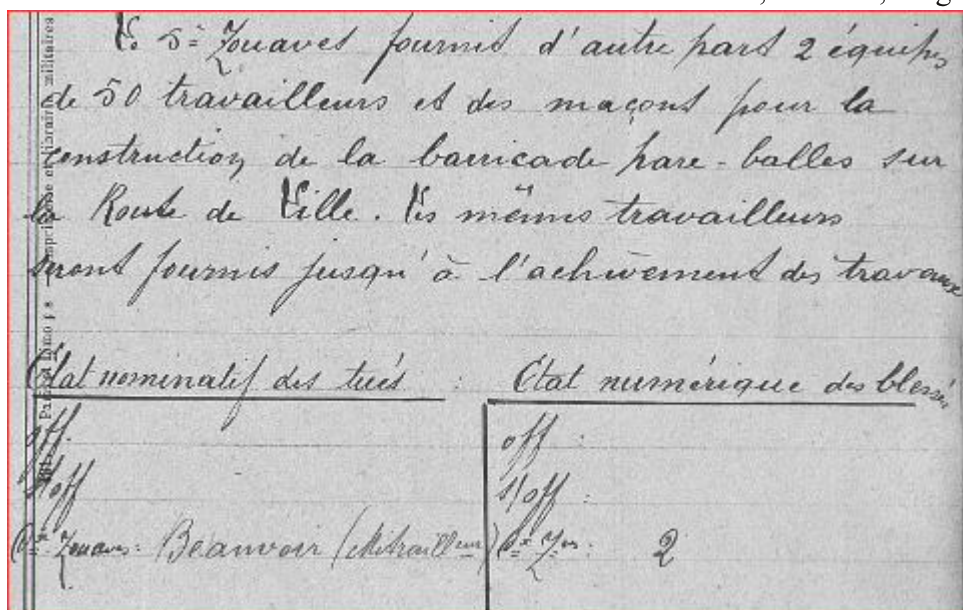 Le 5e Zouaves fournit d'autre part 2 équipes
de 50 travailleurs et des maçons pour la
construction de la barricade pare-balles sur
la Route de Lille. Les mêmes travailleurs
seront fournis jusqu'à l'achèvement des travaux
Etat nominatif des tués : Etat numérique des blessés
off. off :
S/off S/off :
Cx Zouaves : Beauvoir (Mitrailleur) Cx Zves : 2